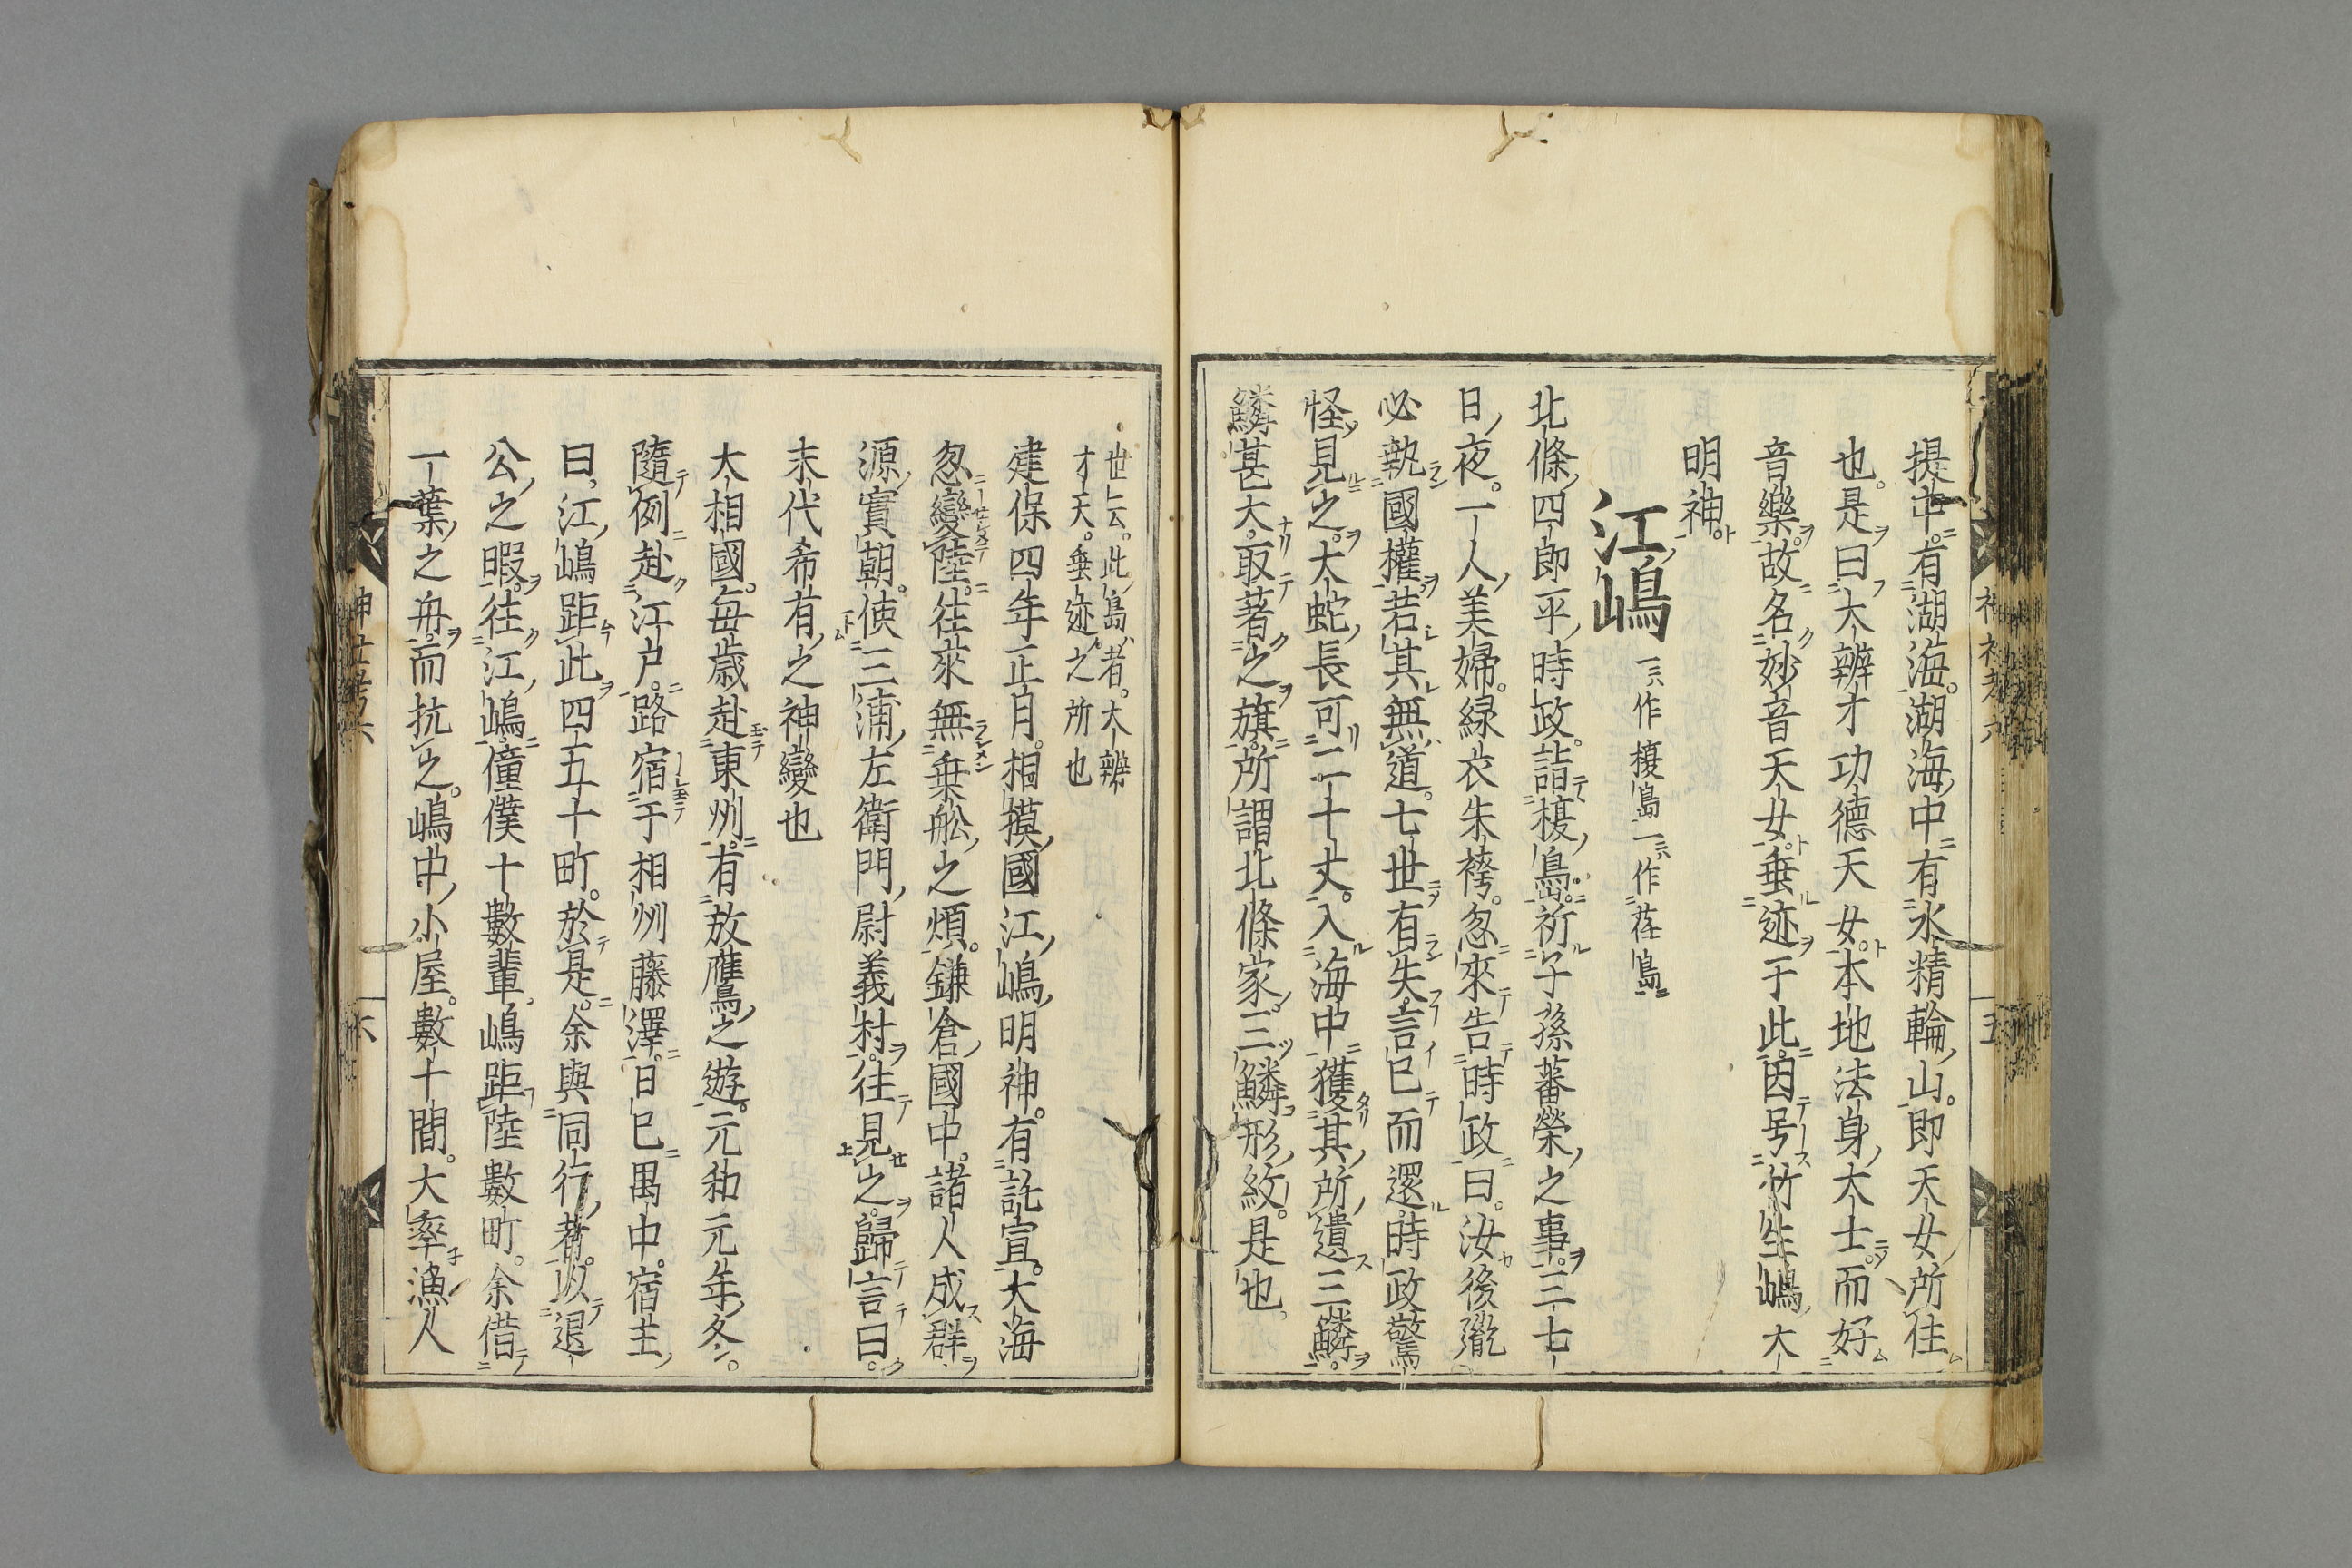 提中有湖海湖海中有水精輪山即天女所住
也是曰大辨才功德天女本地法身大士而好
音樂故名妙音天女垂迹于此因号竹生嶋大
明神
江嶋 一作榎島一作荏島
北條四郎平時政詣榎島祈子孫蕃榮之事三七
日夜一人美婦緑衣朱袴忽來告時政曰汝後胤
必執國權若其無道七世有失言已而還時政驚
怪見之大蛇長可二十丈入海中獲其所遺三鱗
鱗甚大取著之旗所謂北條家三鱗形紋是也
世云此島者大辨
才天垂迹之所也
建保四年正月相摸國江嶋明神有託宣大海
忽變陸往來無乗舩之煩鎌倉國中諸人成群
源實朝使三浦左衛門尉義村往見之歸言曰
末代希有之神變也
大相國毎歳赴東州有放鷹之遊元和元年冬
隨例赴江户路宿于相州藤澤日已禺中宿主
曰江嶋距此四五十町於是余與同行者以退
公之暇往江嶋僮僕十數輩嶋距陸數町余借
一葉之舟而抗之嶋中小屋數十間大率漁人
五
六